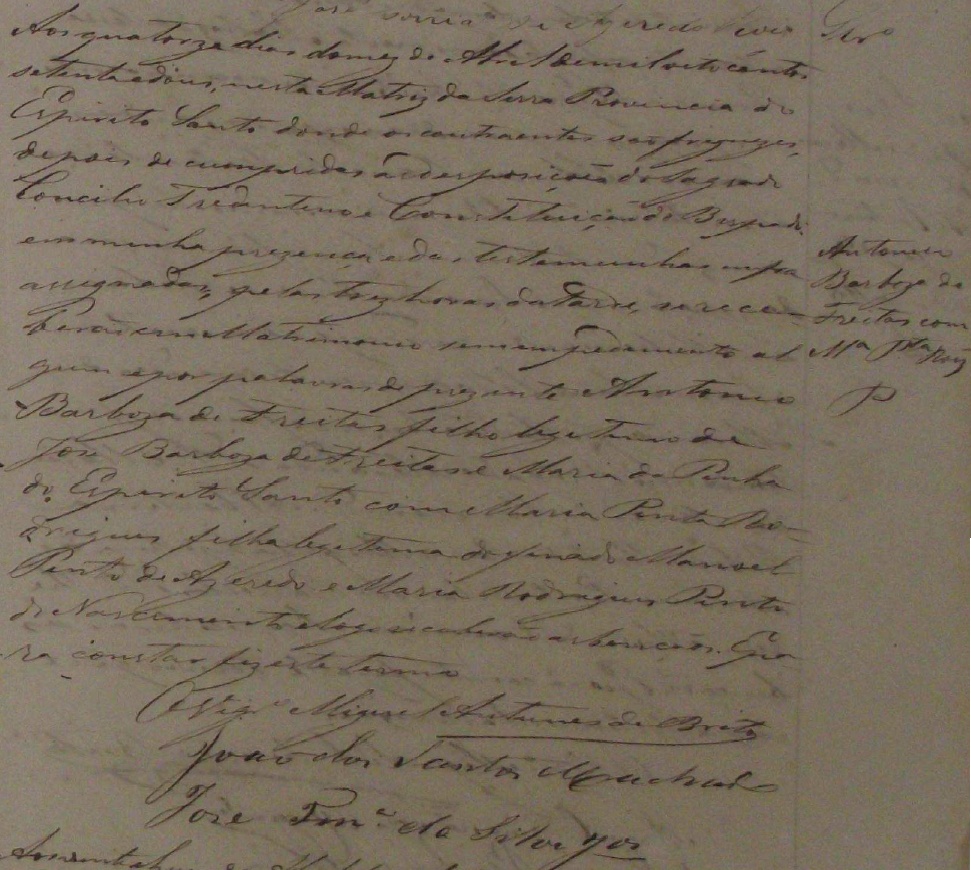 José Correa de Azeredo
Aos quatorze dias do mez de Abril de mil oito centos
setenta e dous, nesta Matriz da Serra Provincia do
Espirito Santo donde os contraentes são freguezes,
depois de cumpridas as desposições do Sagrado
Concilio Tredentino e Constituição do Bispado
em minha prezença e das testemunhas infra
assignadas, pelas trez horas da tarde, se rece-
berão em Matrimonio sem empedemento al
gum e por palavras de prezente Antonio
Barboza de Freitas filho legetimo de
José Barboza de Freitas e Maria da Penha
do Espirito Santo com Maria Pinta Ro-
drigues filha legetima do finado Manoel
Pinto de Azeredo e Maria Rodrigues Pinto
do Nascimento e logo receberão as bençãos. E pa
ra constar fiz este termo
O Vigrº Miguel Antunes de Brito
João dos Santos Machado
José da Silva
Antonio
Barboza de
Freitas com
Mª Pta Roiz
P